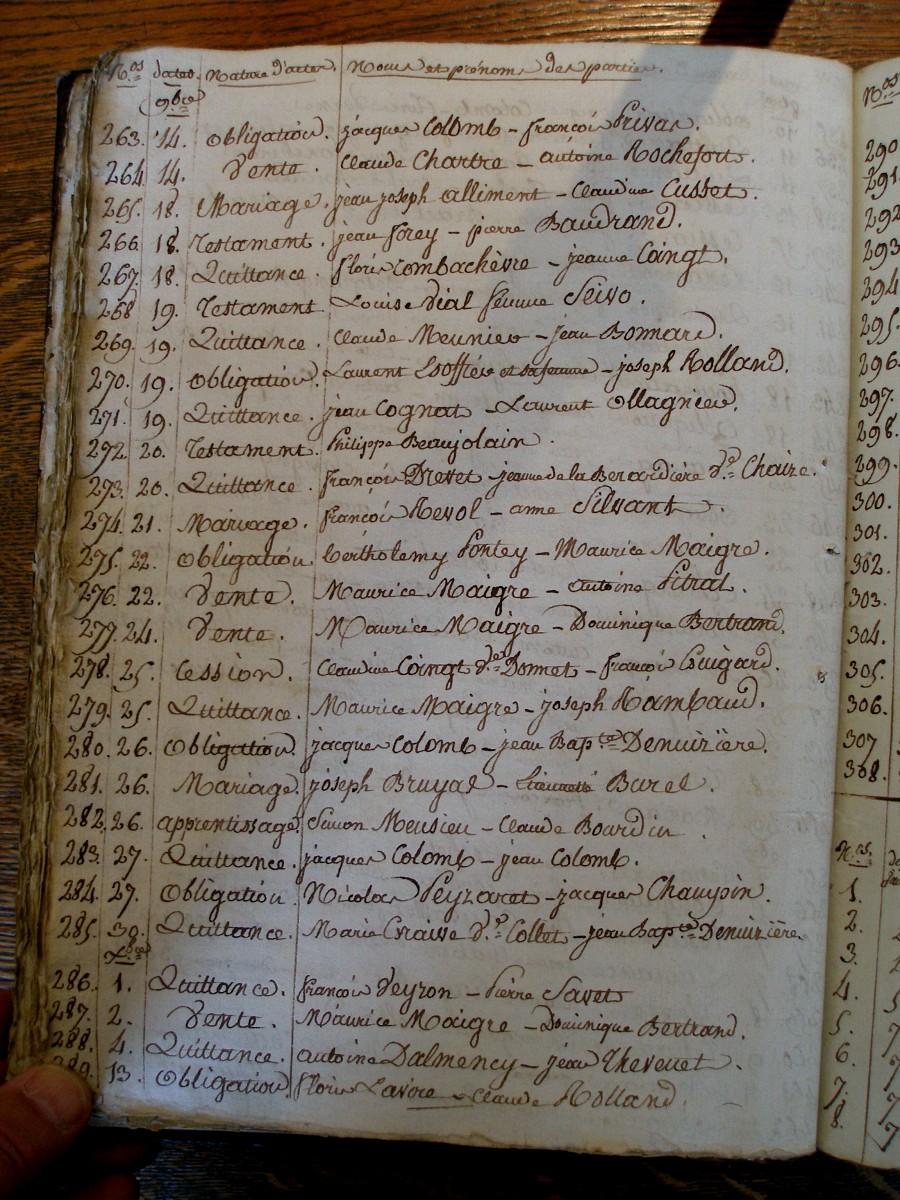 N.os dates. Nature d'actes. Noms et prénoms des parties.
9.bre
263. 14. Obligation. jacques Colomb - françois Privas.
264 14. Vente. Claude Chartre - antoine Rochefort.
265. 18. Mariage. jean joseph alliment - Claudine Cusset.
266. 18. Testament. jean forey - pierre Baudrand.
267. 18. Quittance. floris Combachèvre - jeanne Coingt.
268 19. Testament Louise Vial femme Seivo.
269. 19. Quittance. Claude Meunier - jean Bonnard.
270. 19. Obligation. Laurent et sa femme - joseph Rolland.
271. 19. Quittance. jean Cognat - Laurent Ollagnier.
272. 20. Testament. Philippe Beaujolain.
273. 20. Quittance. françois Drevet - jeanne de la Berardière d.e Chaize.
274. 21. Mariage. françois Revol - anne Silvant.
275. 22. Obligation. berthelemy Pontey - Maurice Maigre.
276. 22. Vente. Maurice Maigre - antoine Pitrat.
277. 24. Vente. Maurice Maigre - Dominique Bertrand.
278. 25. Cession. Claudine Coingt Donnet - françois Guigard.
279. 25. Quittance. Maurice Maigre - joseph Rambaud.
280. 26. Obligation. jacques Colomb - jean Bap.te Denuizière.
281. 26. Mariage. joseph Bruyas - Etiennette Burel.
282. 26. apprentissage. Simon Meusieu - Claude Bourdin.
283. 27. Quittance. jacques Colomb - jean Colomb.
284. 27. Obligation. Nicolas Peyzaret - jacques Champin.
285. 30. Quittance. Marie d.e Collet - jean Bap.te Denuizière.
X.bre
286. 1. Quittance. françois Veyron - Pierre Savet
287. 2. Vente. Maurice Maigre - Dominique Bertrand.
288. 4. Quittance. antoine Dalmency - jean Thevenet.
289. 13. Obligation. floris Lavore - Claude Rolland.
N.os
290
291.
292
293
294
295.
296.
297.
298.
299.
300.
301.
302.
303.
304.
305.
306.
307
308.
N.os
1.
2.
3.
4.
5.
6.
7.
8.